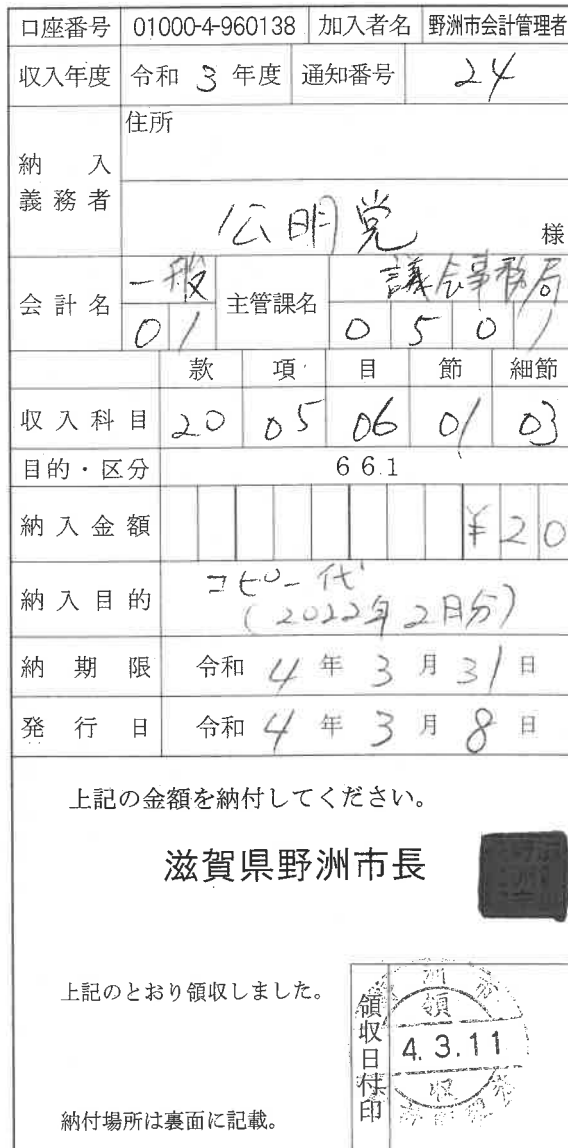 口座番号 01000-4-960138 加入者名 野洲市会計管理者
収入年度 令和 3 年度 通知番号 24
住所
納入義務者
公明党 様
会計名 一般 主管課名 議会事務局
01 0501
款 項 目 節 細節
収入科目 20 05 06 01 03
目的・区分 661
納入金額 ¥20
納入目的 コピー代
(2022年2月分)
納期限 令和 4 年 3 月 31 日
発行日 令和 4 年 3 月 8 日
上記の金額を納付してください。
滋賀県野洲市長
上記のとおり領収しました。
領収日付印
領
4.3.11
収
納付場所は裏面に記載。